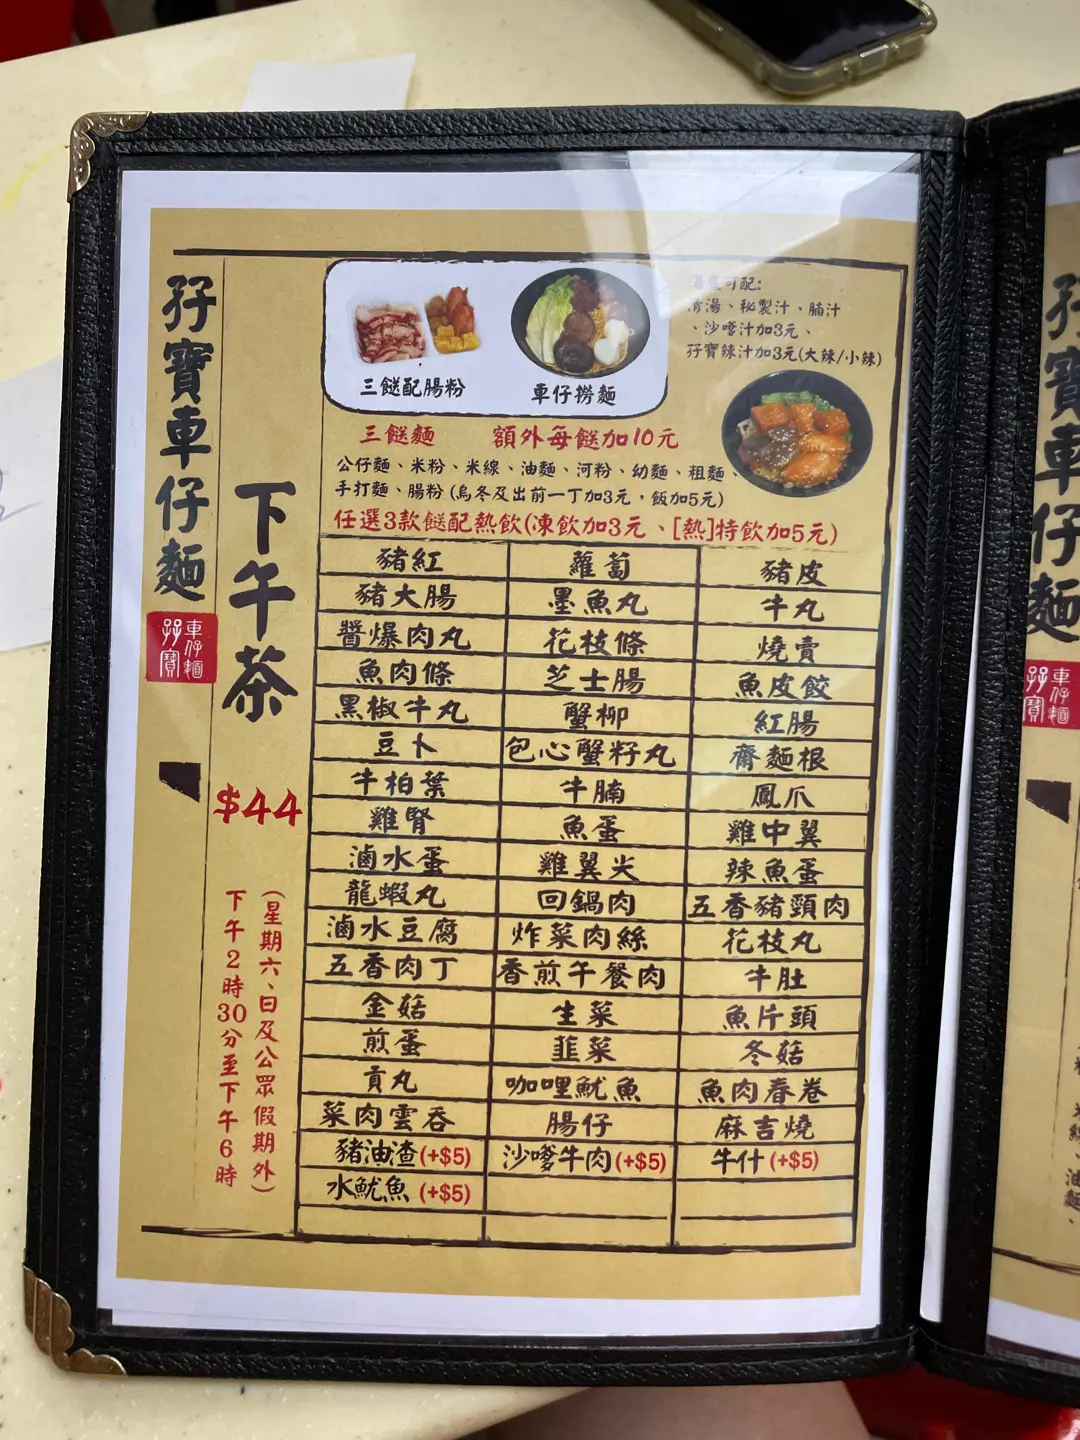 孖寶車仔麵
孖寶
車仔麵
下午茶
$44
(星期六、日及公眾假期外)
下午2時30分至下午6時
三餸配腸粉
車仔撈麵
可配:
清湯、秘製汁、腩汁
、沙嗲汁加3元、
孖寶辣汁加3元(大辣/小辣)
三餸麵 額外每餸加10元
公仔麵、米粉、米線、油麵、河粉、幼麵、粗麵、
手打麵、腸粉(烏冬及出前一丁加3元，飯加5元)
任選3款餸配熱飲(凍飲加3元、[熱]特飲加5元)
豬紅 蘿蔔 豬皮
豬大腸 墨魚丸 牛丸
醬爆肉丸 花枝條 燒賣
魚肉條 芝士腸 魚皮餃
黑椒牛丸 蟹柳 紅腸
豆卜 包心蟹籽丸 齋麵根
牛柏葉 牛腩 鳳爪
雞腎 魚蛋 雞中翼
滷水蛋 雞翼尖 辣魚蛋
龍蝦丸 回鍋肉 五香豬頸肉
滷水豆腐 炸菜肉絲 花枝丸
五香肉丁 香煎午餐肉 牛肚
金菇 生菜 魚片頭
煎蛋 韮菜 冬菇
貢丸 咖哩魷魚 魚肉春卷
菜肉雲吞 腸仔 麻吉燒
豬油渣(+$5) 沙嗲牛肉(+$5) 牛什(+$5)
水魷魚(+$5)
孖寶車仔麵
孖寶
車仔麵
油麵、